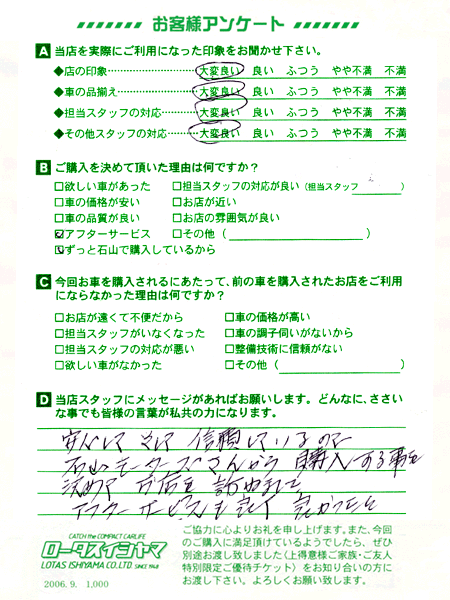 お客様アンケート
A 当店を実際にご利用になった印象をお聞かせ下さい。
◆店の印象 大変良い 良い ふつう やや不満 不満
◆車の品揃え 大変良い 良い ふつう やや不満 不満
◆担当スタッフの対応 大変良い 良い ふつう やや不満 不満
◆その他スタッフの対応 大変良い 良い ふつう やや不満 不満
B ご購入を決めて頂いた理由は何ですか？
□欲しい車があった □担当スタッフの対応が良い（担当スタッフ ）
□車の価格が安い □お店が近い
□車の品質が良い □お店の雰囲気が良い
☑アフターサービス □その他（ ）
☑ずっと石山で購入しているから
C 今回お車を購入されるにあたって、前の車を購入されたお店をご利用
にならなかった理由は何ですか？
□お店が遠くて不便だから □車の価格が高い
□担当スタッフがいなくなった □車の調子伺いがないから
□担当スタッフの対応が悪い □整備技術に信頼がない
□欲しい車がなかった □その他（ ）
D 当店スタッフにメッセージがあればお願いします。どんなに、ささい
な事でも皆様の言葉が私共の力になります。
安心して そして 信頼しているので
石山モータースさんから 購入する事を
決めて お店を 訪ねまして
アフターサービスも良く 良かったです
ご協力に心よりお礼を申し上げます。また、今回
のご購入に満足頂けているようでしたら、ぜひ
別途お渡し致しました《上得意様ご家族・ご友人
特別限定ご優待チケット》をお知り合いの方に
お渡し下さい。よろしくお願い致します。
CATCH the COMPACT CARLIFE
ロータスイシヤマ
LOTAS ISHIYAMA CO.,LTD. SINCE 1948
2006. 9. 1,000